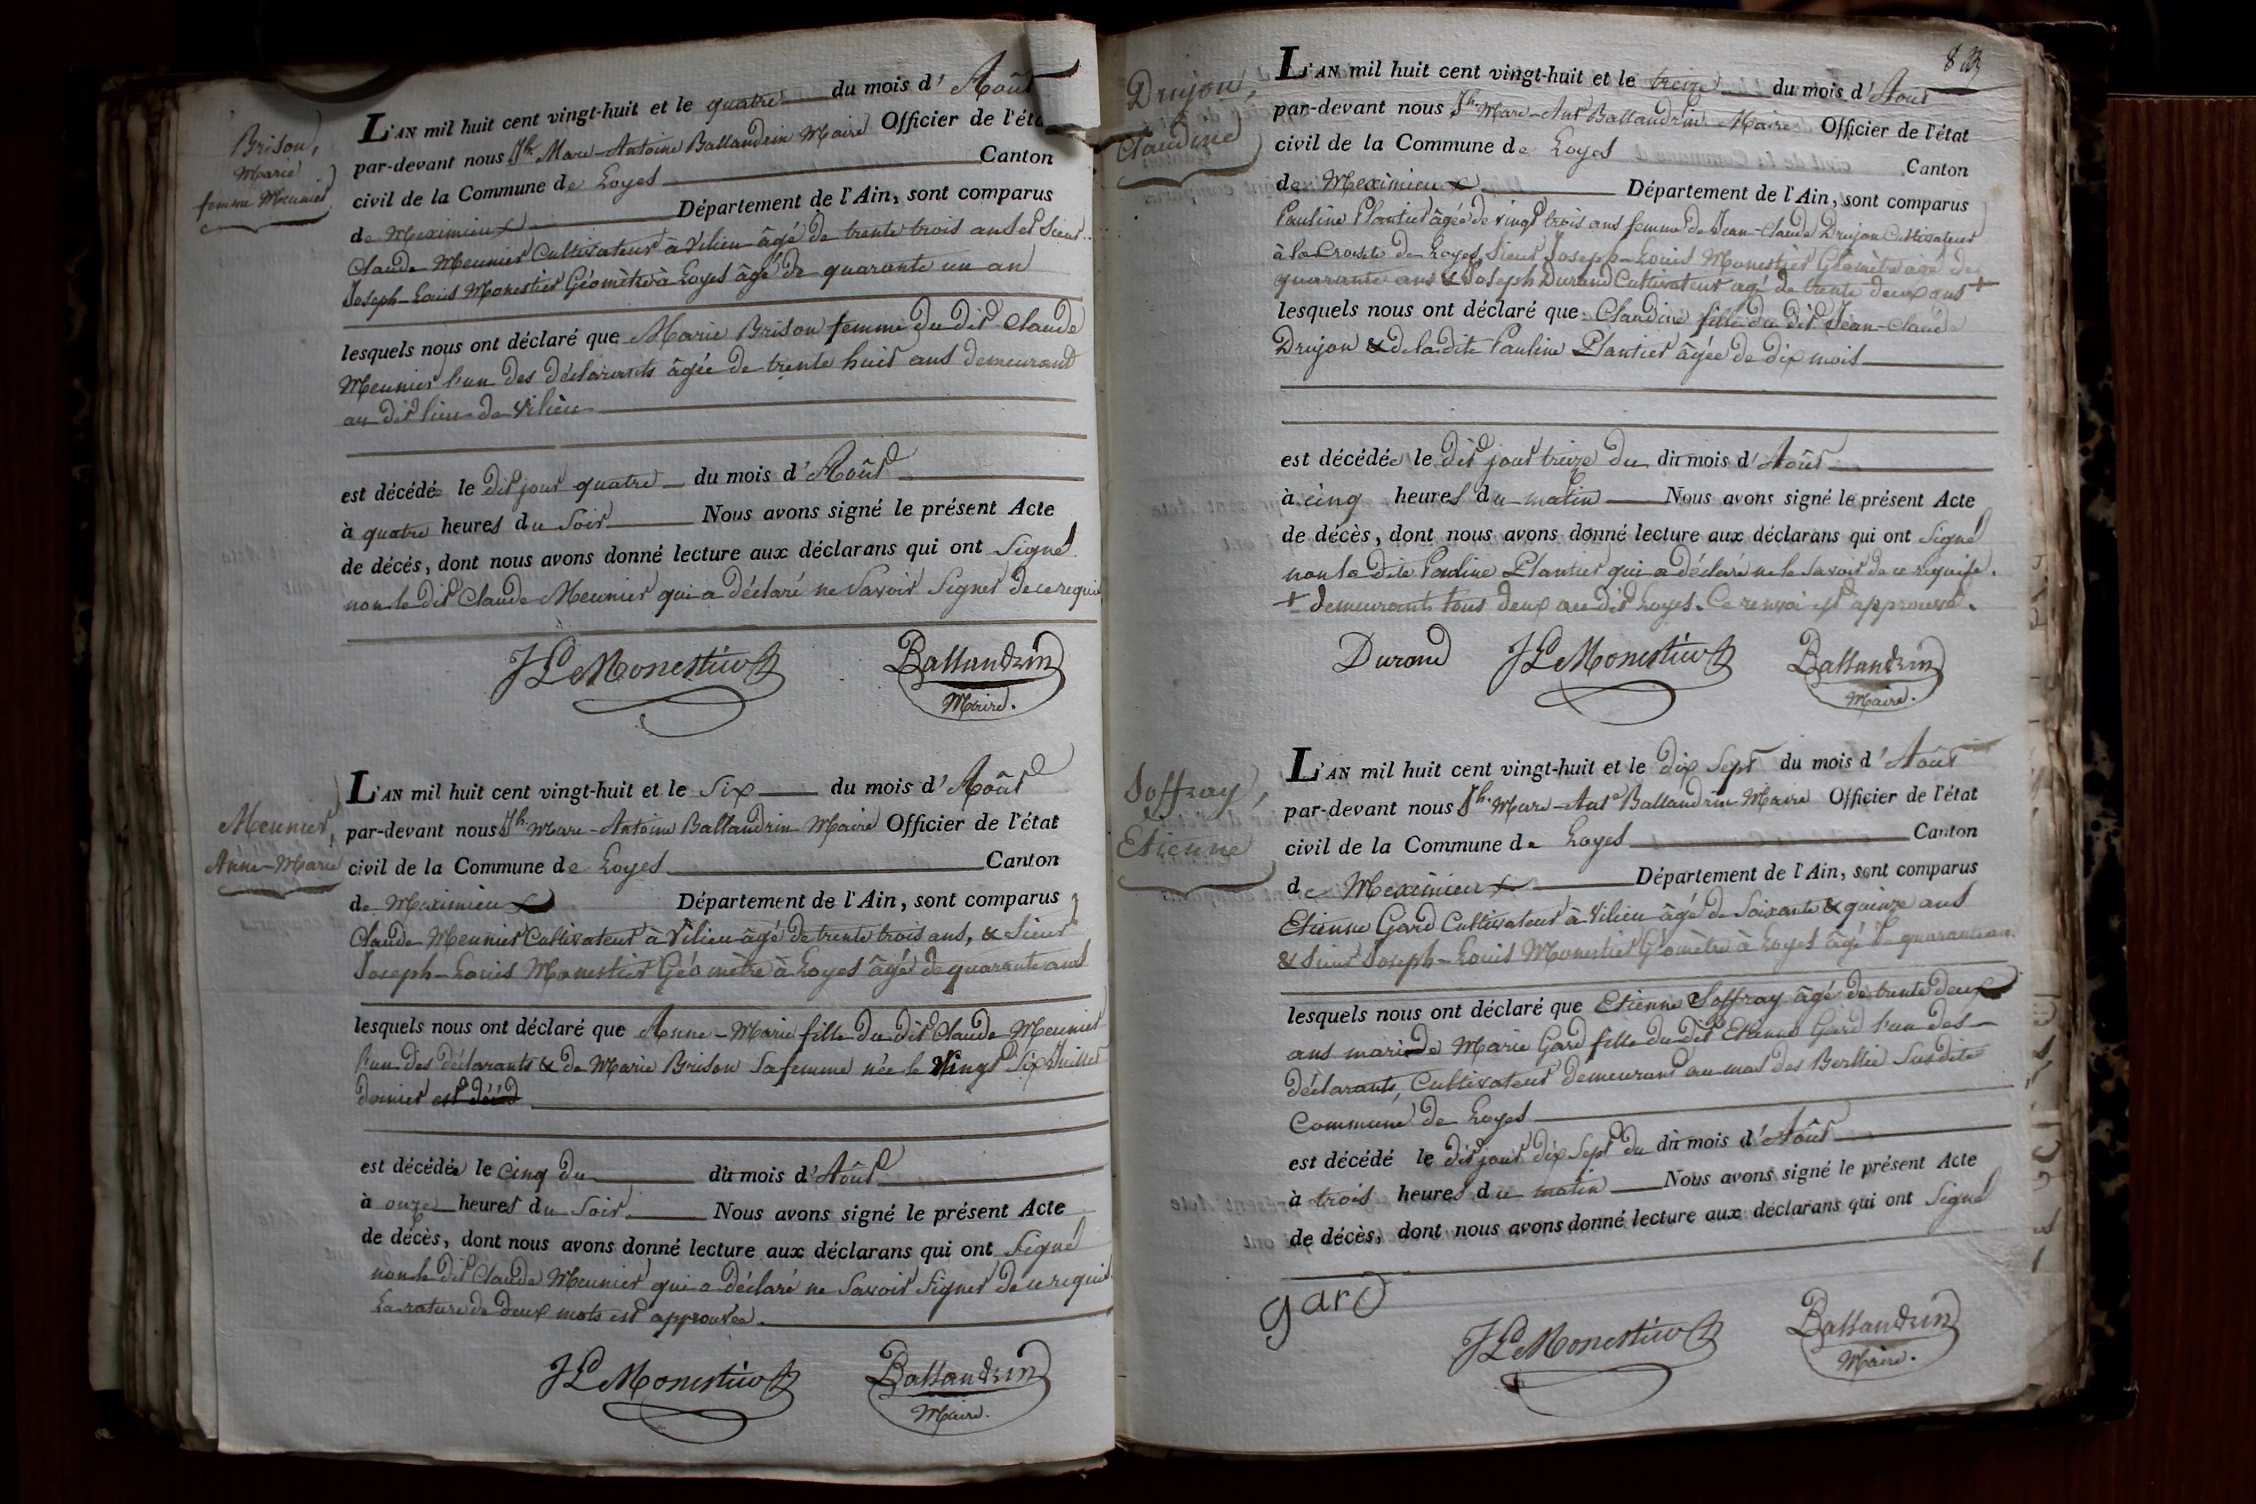 Brison,
Marie
femme Meunier
L'AN mil huit cent vingt-huit et le quatre du mois d'Août
par-devant nous Jh. Marc-Antoine Ballandrin Maire Officier de l'éta
civil de la Commune de Loyes Canton
de Meximieux Département de l'Ain, sont comparus
Claude Meunier Cultivateur à Vilieu âgé de trente trois ans et Sieur
Joseph-Louis Monestier Géomètre à Loyes âgé de quarante un an
lesquels nous ont déclaré que Marie Brison femme du dit Claude
Meunier l'un des déclarants âgée de trente huit ans demeurant
au dit lieu de Vilieu
est décédée le dit jour quatre du mois d'Août
à quatre heures du Soir Nous avons signé le présent Acte
de décés, dont nous avons donné lecture aux déclarans qui ont Signé
non le dit Claude Meunier qui a déclaré ne Savoir Signer de ce requis
JL Monestier
Ballandrin
Maire.
Meunier,
Anne-Marie
L'AN mil huit cent vingt-huit et le Six du mois d'Août
par-devant nous Jh. Marc-Antoine Ballandrin Maire Officier de l'état
civil de la Commune de Loyes Canton
de Meximieux Département de l'Ain, sont comparus
Claude Meunier Cultivateur à Vilieu âgé de trente trois ans, & Sieur
Joseph-Louis Monestier Géomètre à Loyes âgé de quarante ans
lesquels nous ont déclaré que Anne-Marie fille du dit Claude Meunier
l'un des déclarants & de Marie Brison Sa femme née le Vingt Six Juillet
dernier est décéd
est décédée le cinq du dit mois d'Août
à onze heures du Soir Nous avons signé le présent Acte
de décès, dont nous avons donné lecture aux déclarans qui ont Signé
non le dit Claude Meunier qui a déclaré ne Savoir Signer de ce requis
La rature de deux mots est approuvée.
JL Monestier
Ballandrin
Maire.
83
Drujon,
Claudine
L'AN mil huit cent vingt-huit et le treize du mois d'Août
par-devant nous Jh. Marc-Ant Ballandrin Maire Officier de l'état
civil de la Commune de Loyes Canton
de Meximieux Département de l'Ain, sont comparus
Pauline Plantier âgée de vingt trois ans femme de Jean-Claude Drujon Cultivateur
à la Croisée de Loyes, Sieur Joseph-Louis Monestier Géomètre âgé de
quarante ans & Joseph Durand Cultivateur agé de trente deux ans +
lesquels nous ont déclaré que Claudine fille du dit Jean-Claude
Drujon & de la dite Pauline Plantier âgée de dix mois
est décédée le dit jour treize du dit mois d'Août
à cinq heures du matin Nous avons signé le présent Acte
de décès, dont nous avons donné lecture aux déclarans qui ont Signé
non la dite Pauline Plantier qui a déclaré ne le Savoir de ce requise.
+ demeurants tous deux au dit Loyes. Ce renvoi est approuvé.
Durand
JL Monestier
Ballandrin
Maire.
Soffray,
Etienne
L'AN mil huit cent vingt-huit et le dix Sept du mois d'Août
par-devant nous Jh. Marc-Ante Ballandrin Maire Officier de l'état
civil de la Commune de Loyes Canton
de Meximieux Département de l'Ain, sont comparus
Etienne Gard Cultivateur à Vilieu âgé de Soixante & quinze ans
& Sieur Joseph-Louis Monestier Géomètre à Loyes âgé de quarante ans
lesquels nous ont déclaré que Etienne Soffray âgé de trente deux
ans mari de Marie Gard fille du dit Etienne Gard l'un des
déclarants, Cultivateur demeurant au mas des Berthe Susdite
Commune de Loyes
est décédé le dit jour dix Sept du dit mois d'Août
à trois heures du matin Nous avons signé le présent Acte
de décès, dont nous avons donné lecture aux déclarans qui ont Signé
gard
JL Monestier
Ballandrin
Maire.